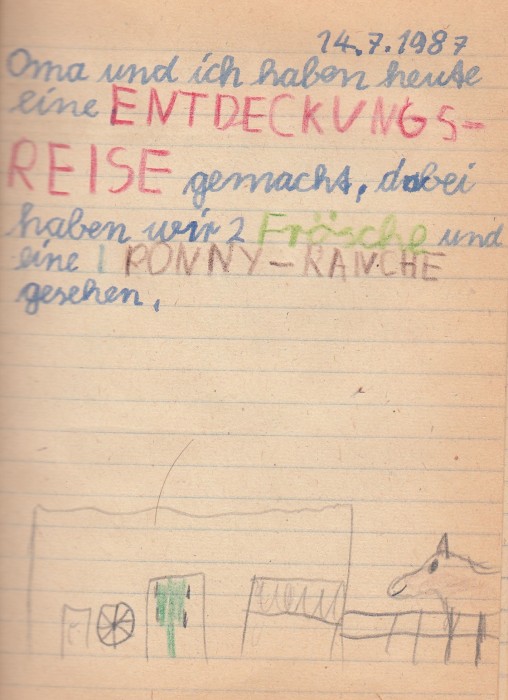 14.7.1987
Oma und ich haben heute
eine ENTDECKUNGS-
REISE gemacht, dabei
haben wir 2 Frösche und
eine PONNY-RANCHE
gesehen.